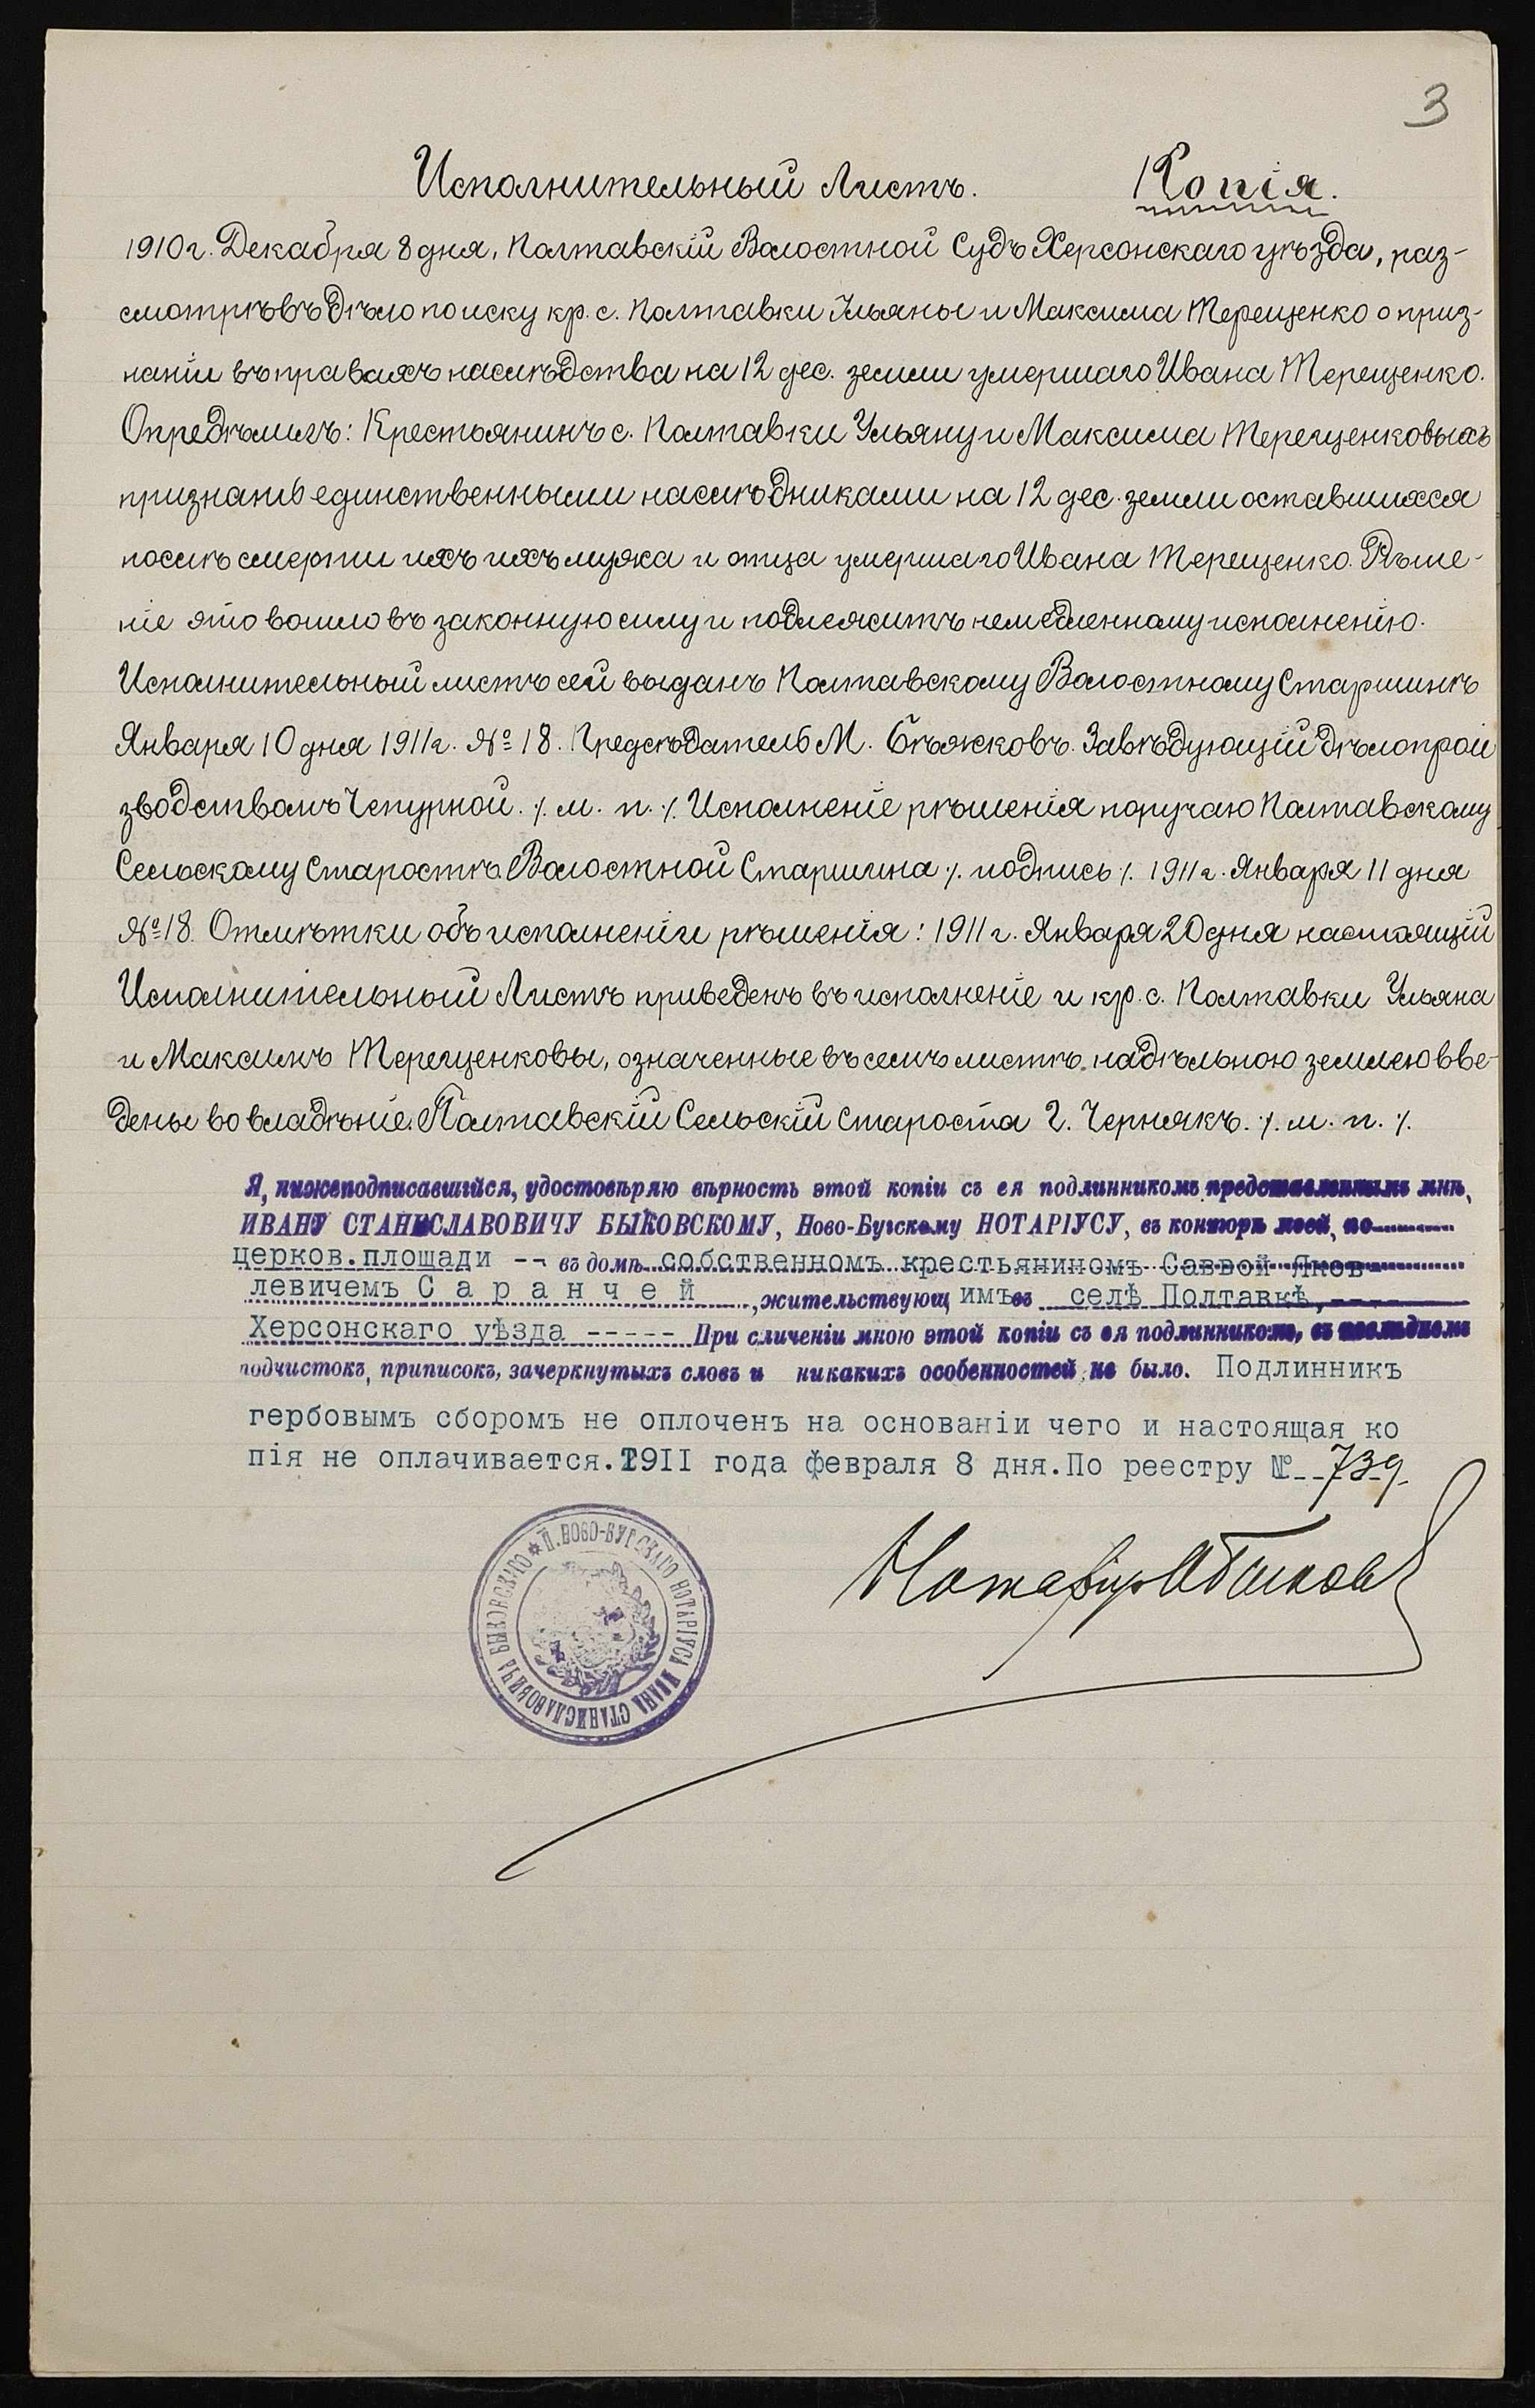 3
Исполнительный Листъ. Копія.
1910 г. Декабря 8 дня, Полтавскій Волостной Судъ Херсонскаго уѣзда, раз-
смотрѣвъ дѣло по иску кр. с. Полтавки Ульяны и Максима Терещенко о приз-
наніи въ правахъ наслѣдства на 12 дес. земли умершаго Ивана Терещенко.
Опредѣлилъ: Крестьянинъ с. Полтавки Ульяну и Максима Терещенковыхъ
признать единственными наслѣдниками на 12 дес. земли оставшихся
послѣ смерти ихъ ихъ мужа и отца умершаго Ивана Терещенко. Рѣше-
ніе это вошло въ законную силу и подлежитъ немедленному исполненію.
Исполнительный листъ сей выданъ Полтавскому Волостному Старшинѣ
Января 10 дня 1911 г. № 18. Предсѣдатель М. Бѣжковъ. Завѣдующій дѣлопрои
зводствомъ Чепурной. ⁒ м. п. ⁒ Исполненіе рѣшенія поручаю Полтавскому
Сельскому Старостѣ. Волостной Старшина ⁒ подпись ⁒ 1911 г. Января 11 дня
№ 18. Отмѣтки объ исполненіи рѣшенія: 1911 г. Января 20 дня настоящій
Исполнительный Листъ приведенъ въ исполненіе и кр. с. Полтавки Ульяна
и Максимъ Терещенковы, означенные въ семъ листѣ, надѣльною землею вве-
дены во владѣніе. Полтавскій Сельскій Староста Г. Чернякъ. ⁒ м. п. ⁒
Я, нижеподписавшійся, удостовѣряю вѣрность этой копіи съ ея подлинникомъ представленнымъ мнѣ,
ИВАНУ СТАНИСЛАВОВИЧУ БЫКОВСКОМУ, Ново-Бугскому НОТАРІУСУ, въ конторѣ моей, по
церков.площади -- въ домѣ собственномъ крестьяниномъ Саввой Яков-
левичемъ С а р а н ч е й, жительствующимъ въ селѣ Полтавкѣ,----
Херсонскаго уѣзда ----- При сличеніи мною этой копіи съ ея подлинникомъ, въ послѣднемъ
подчистокъ, приписокъ, зачеркнутыхъ словъ и никакихъ особенностей не было. Подлинникъ
гербовымъ сборомъ не оплоченъ на основаніи чего и настоящая ко
пія не оплачивается. 1911 года февраля 8 дня. По реестру № 739.
Нотаріусъ Быковскій
* П. НОВО-БУГСКАГО НОТАРІУСА ИВАНА СТАНИСЛАВОВИЧА БЫКОВСКАГО